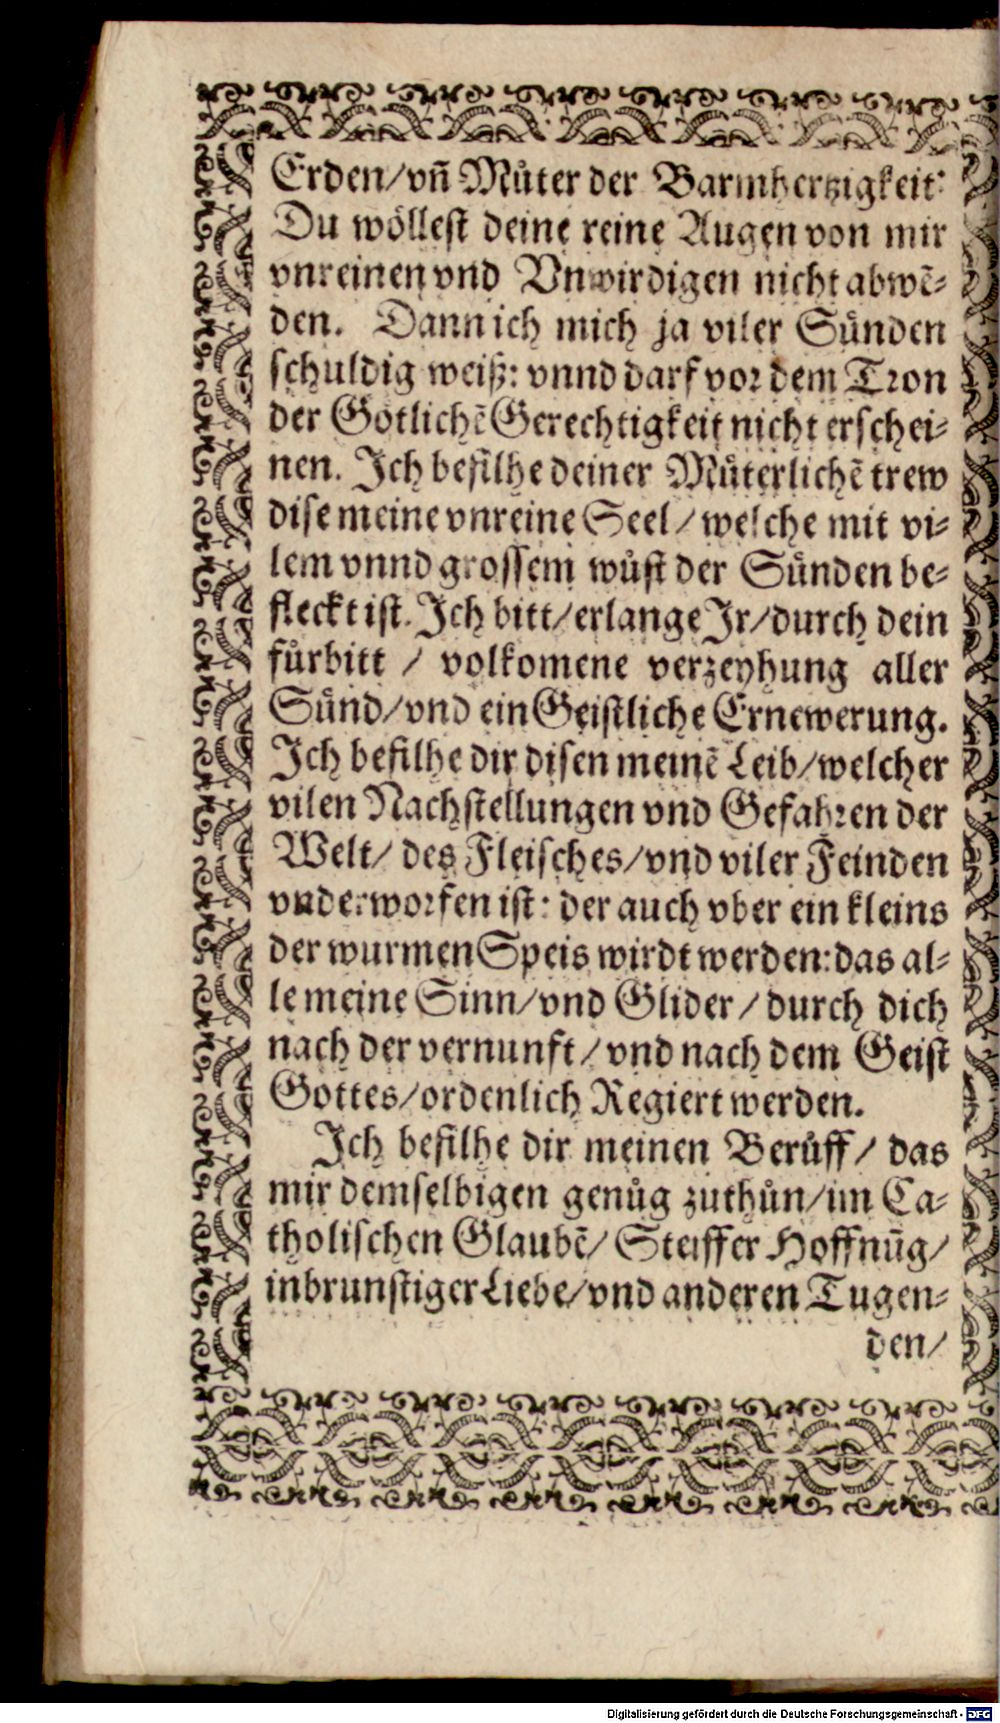 Erden/vñ Muͤter der Barmhertzigkeit:
Du woͤllest deine reine Augen von mir
vnreinen vnd Vnwirdigen nicht abwẽ-
den. Dann ich mich ja viler Suͤnden
schuldig weiß: vnnd darf vor dem Tron
der Gotlichẽ Gerechtigkeit nicht erschei-
nen. Ich befilhe deiner Muͤterlichẽ trew
dise meine vnreine Seel/welche mit vi-
lem vnnd grossem wuͤst der Suͤnden be-
fleckt ist. Ich bitt/erlange Jr/durch dein
fuͤrbitt / volkomene verzeyhung aller
Suͤnd/vnd ein Geistliche Ernewerung.
Ich befilhe dir disen meinẽ Leib/welcher
vilen Nachstellungen vnd Gefahren der
Welt/ des Fleisches/vnd viler Feinden
vnderworfen ist: der auch vber ein kleins
der wurmen Speis wirdt werden: das al-
le meine Sinn/vnd Glider / durch dich
nach der vernunft / vnd nach dem Geist
Gottes/ordenlich Regiert werden.
Ich befilhe dir meinen Beruͤff/ das
mir demselbigen genuͤg zuthuͤn/im Ca-
tholischen Glaubẽ/ Steiffer Hoffnũg/
inbrunstiger Liebe/vnd anderen Tugen-
den/
Digitalisierung gefördert durch die Deutsche Forschungsgemeinschaft - DFG